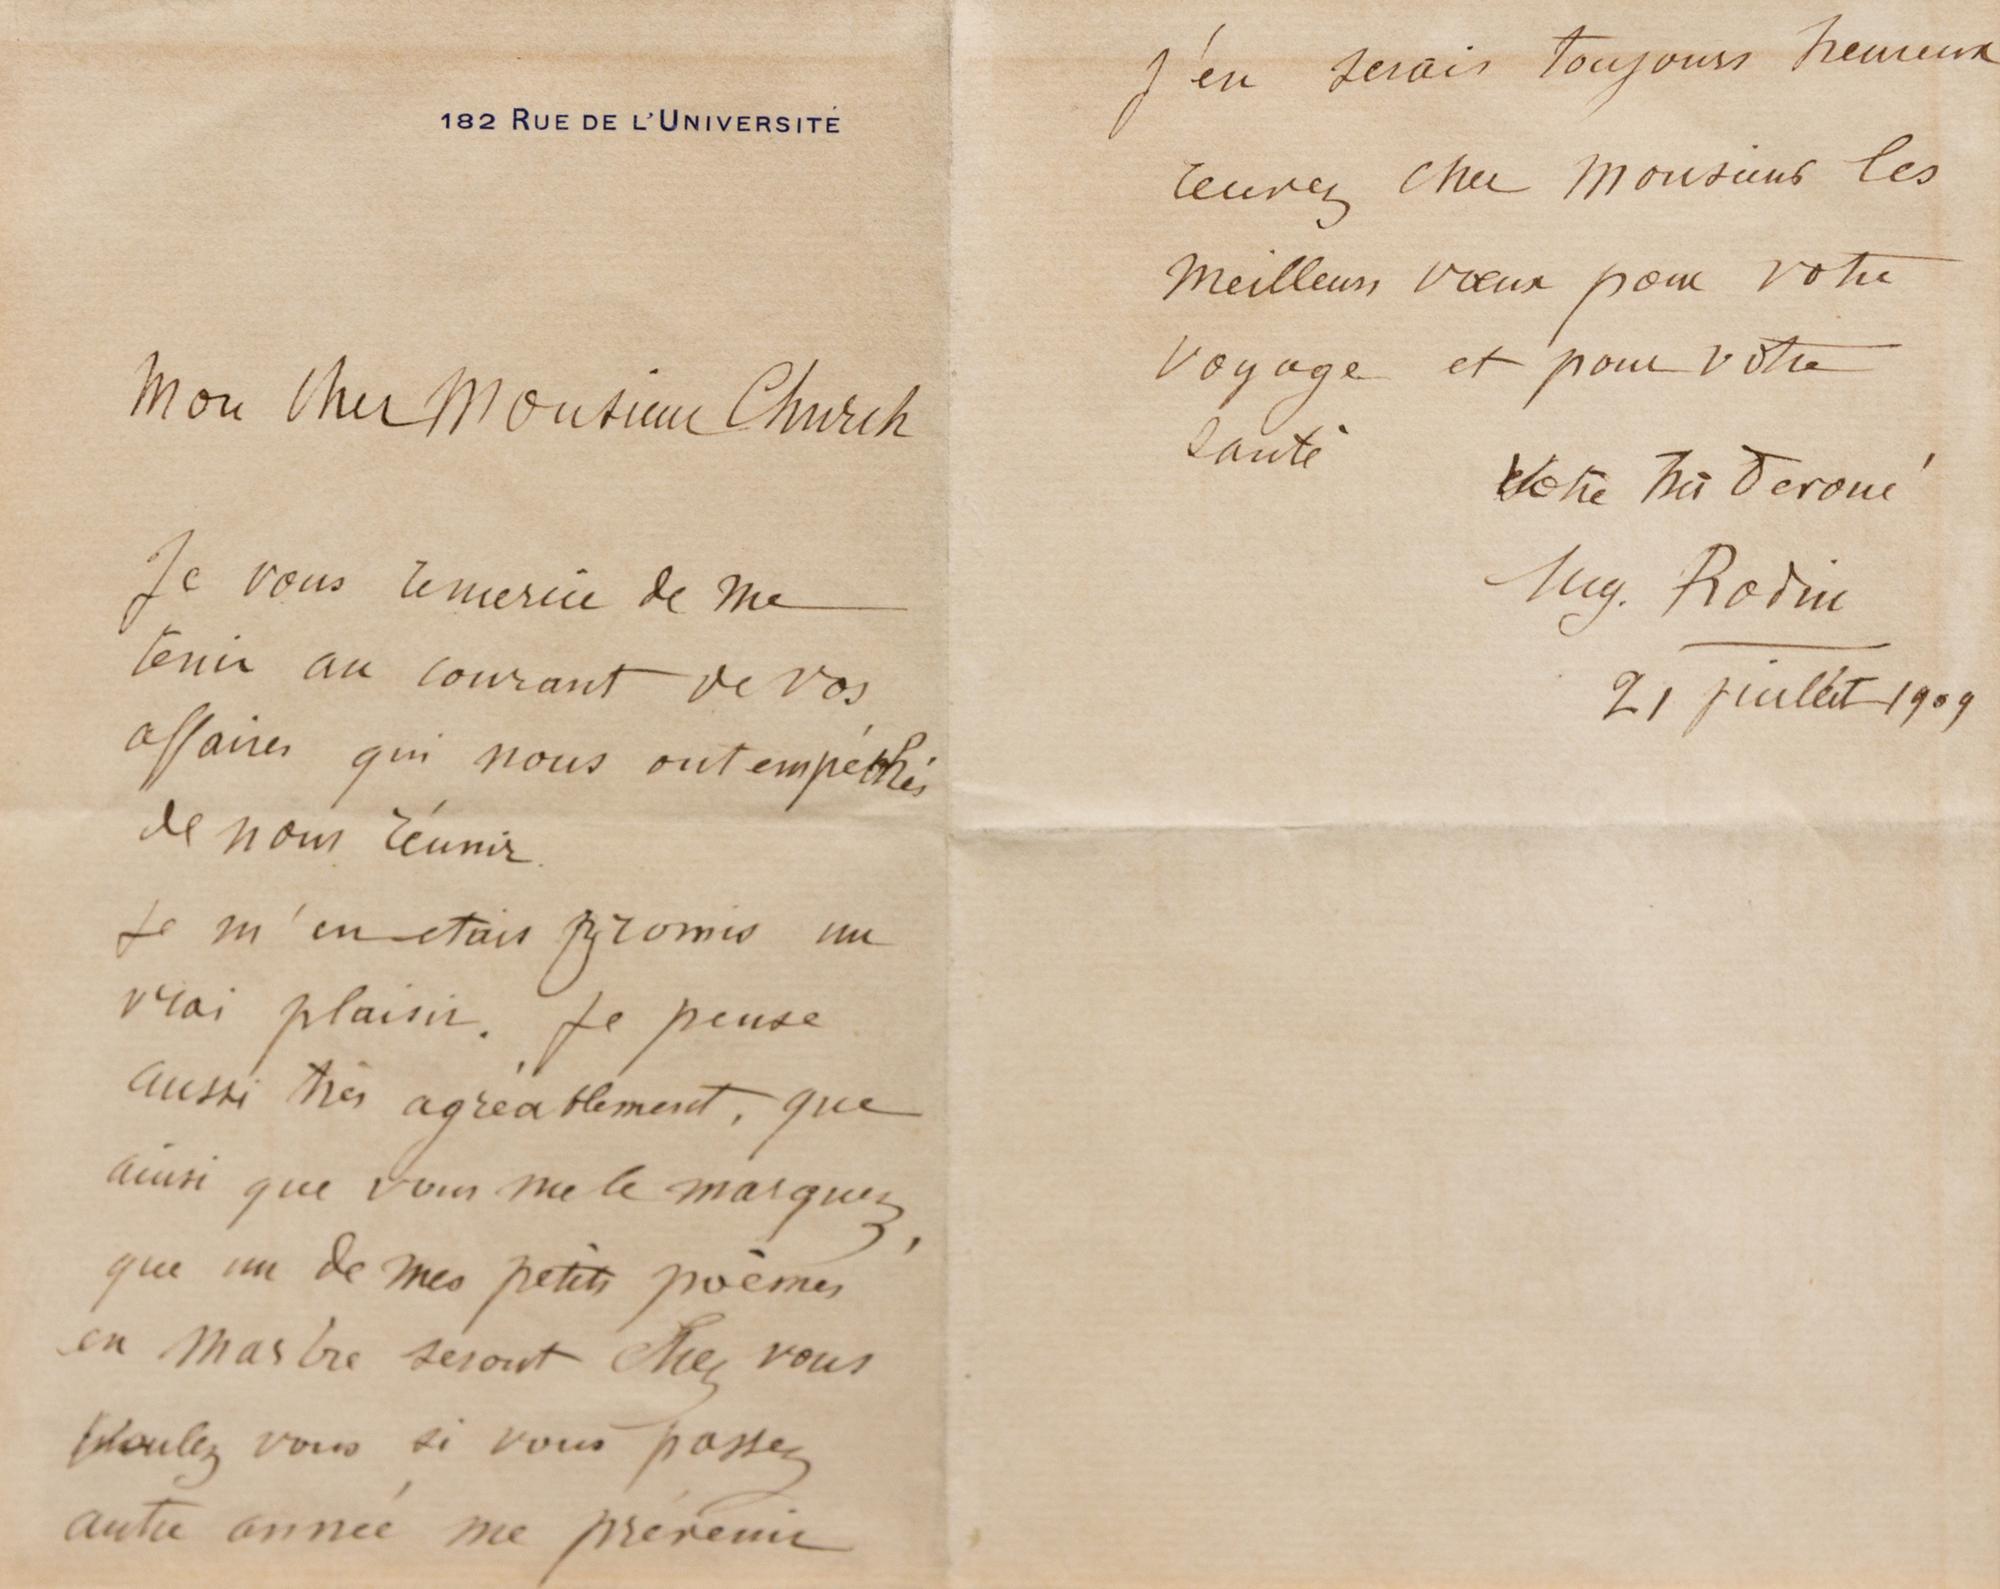 182 RUE DE L'UNIVERSITÉ
Mon cher Monsieur Church
Je vous remercie de me
tenir au courant de vos
affaires qui nous ont empéchés
de nous réunir.
Je m'en etais promis un
vrai plaisir. Je pense
aussi très agréablement, que
ainsi que vous me le marquez,
que un de mes petits poèmes
en marbre seront chez vous
Voulez vous si vous passez
autre année me prévenir
J'en serais toujours heureux
recevez cher Monsieur les
meilleurs vœux pour votre
voyage et pour votre
santé
Votre très devoué
Aug. Rodin
21 juillet 1909